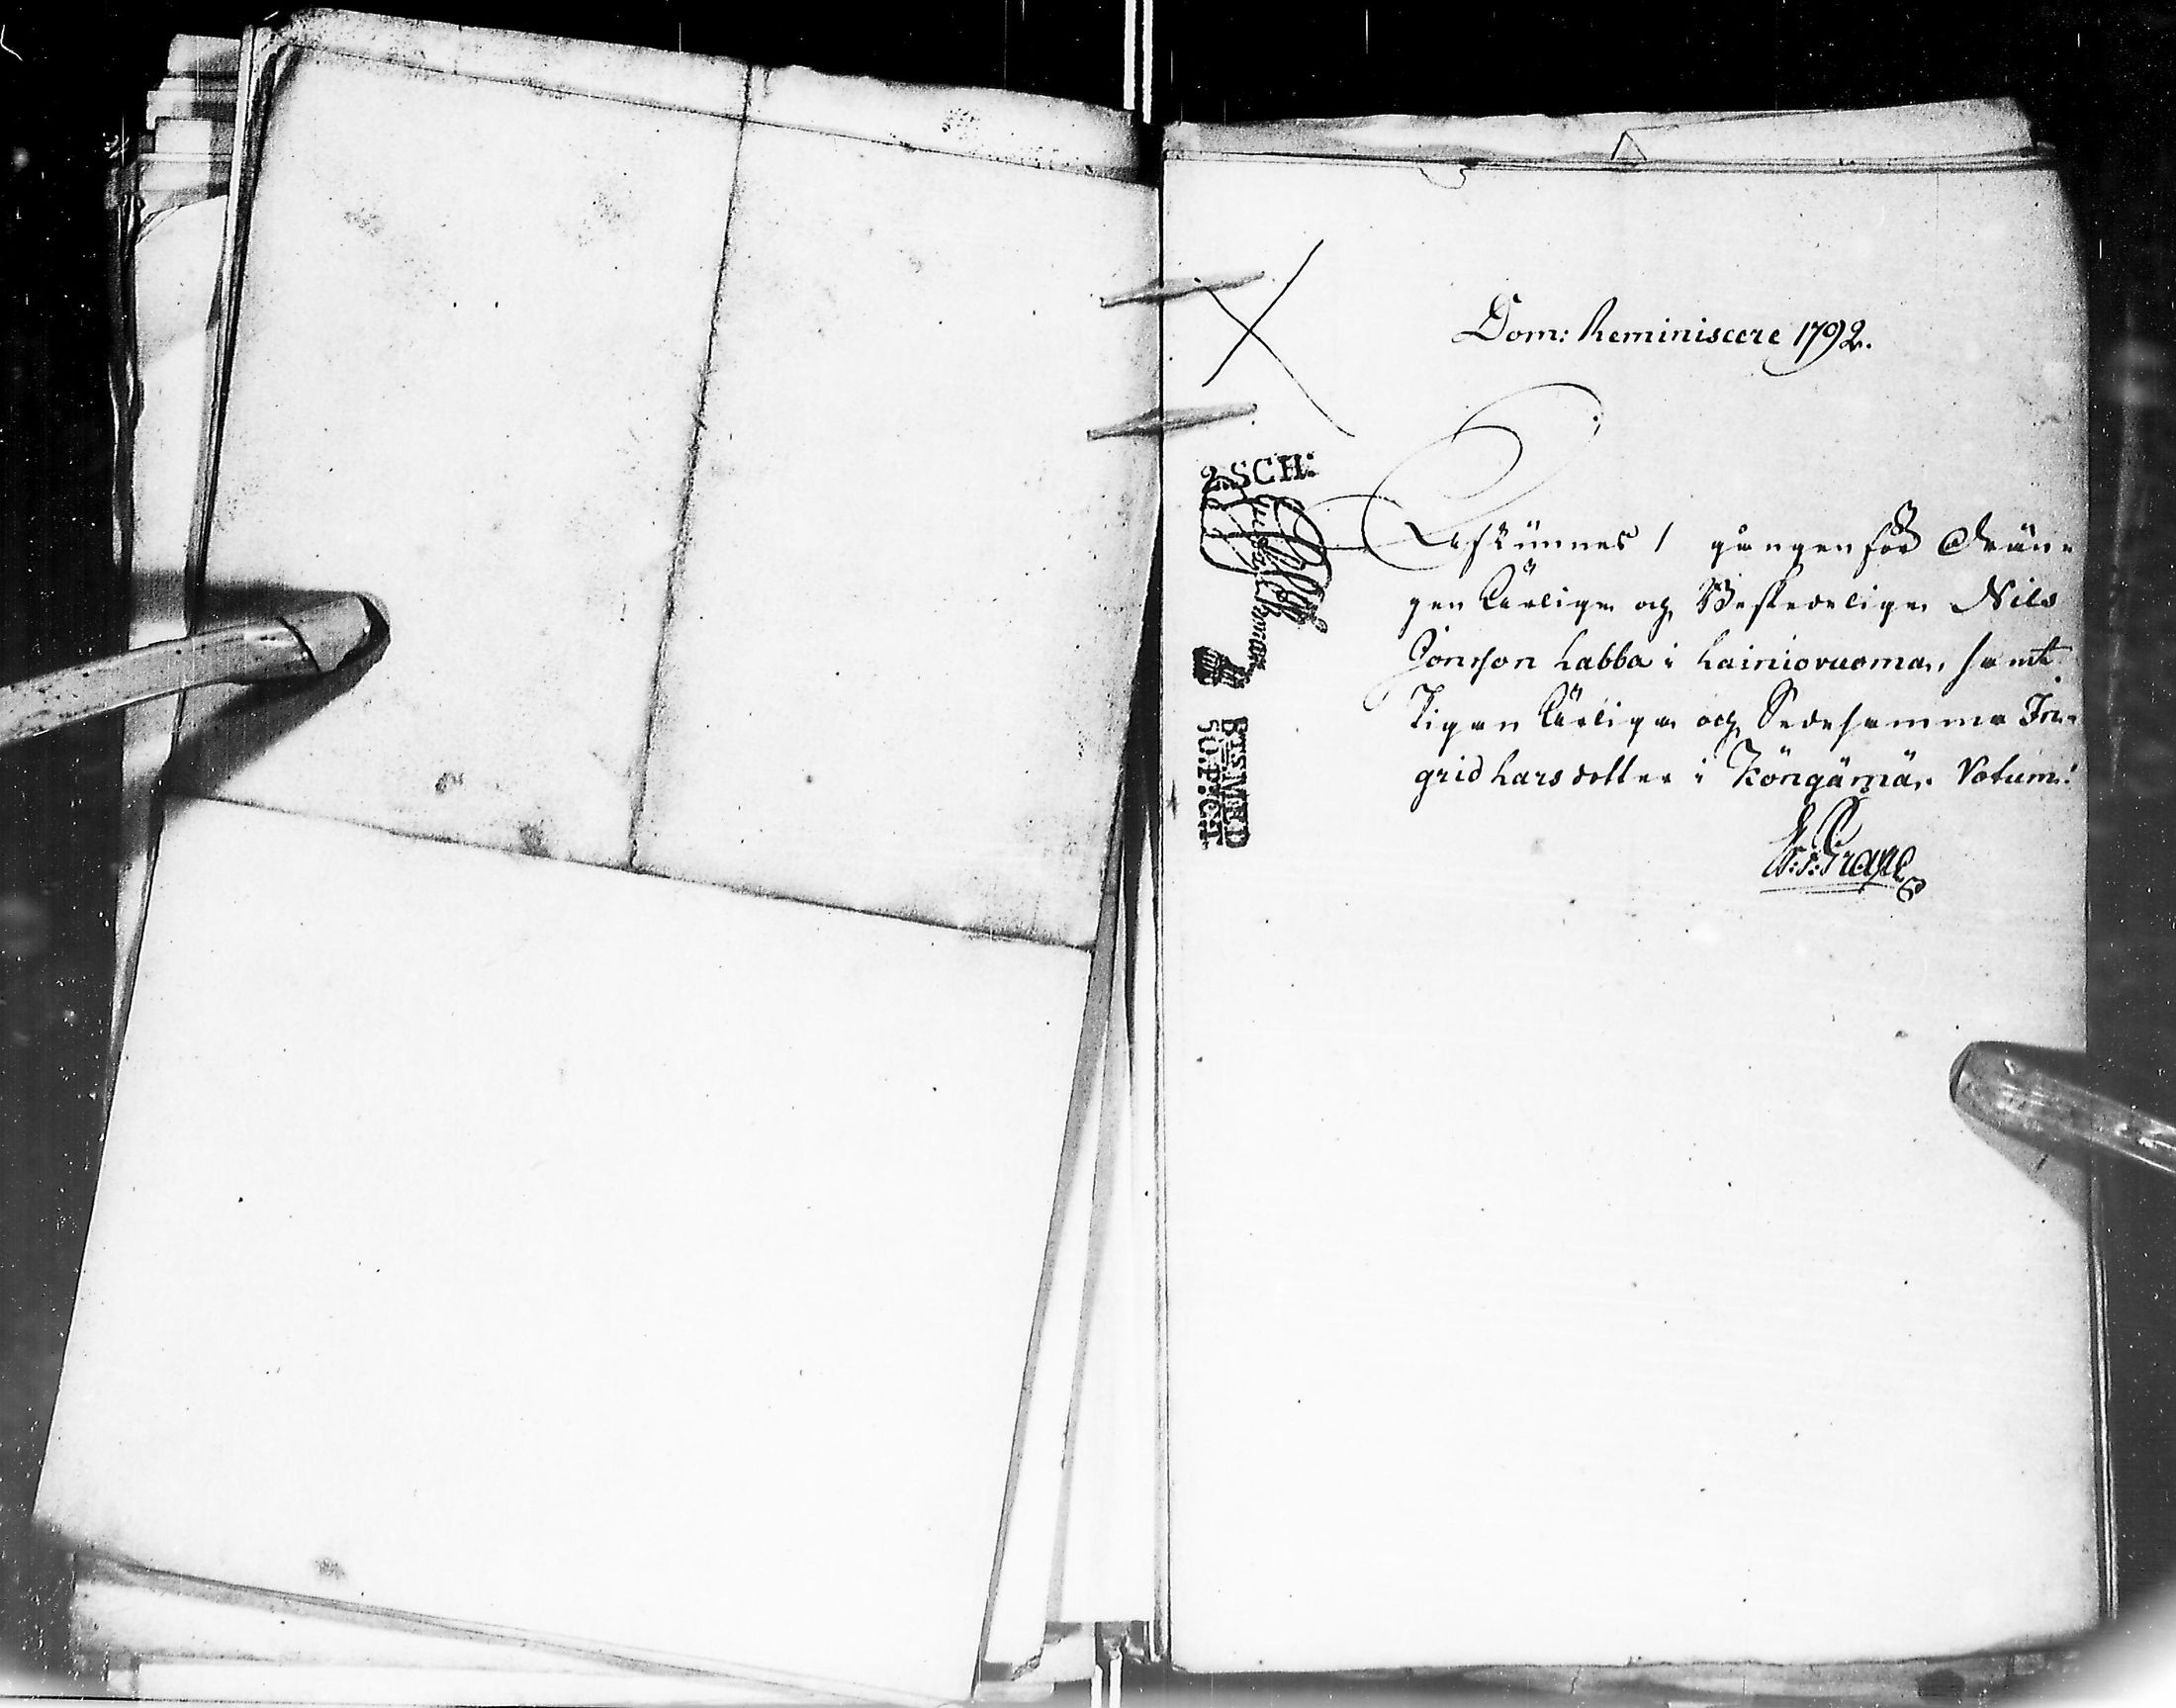 Dom: Reminiscere 1792.
2 SCH:
Afkunnes 1 gången för Drän-
gen Ärlige och Beskedelige Nils
Jonsson Labba i Lainiovuoma, samt
Pigan Ärliga och Sedesamma In-
grid Larsdotter i Köngämä. Votum!
Grape